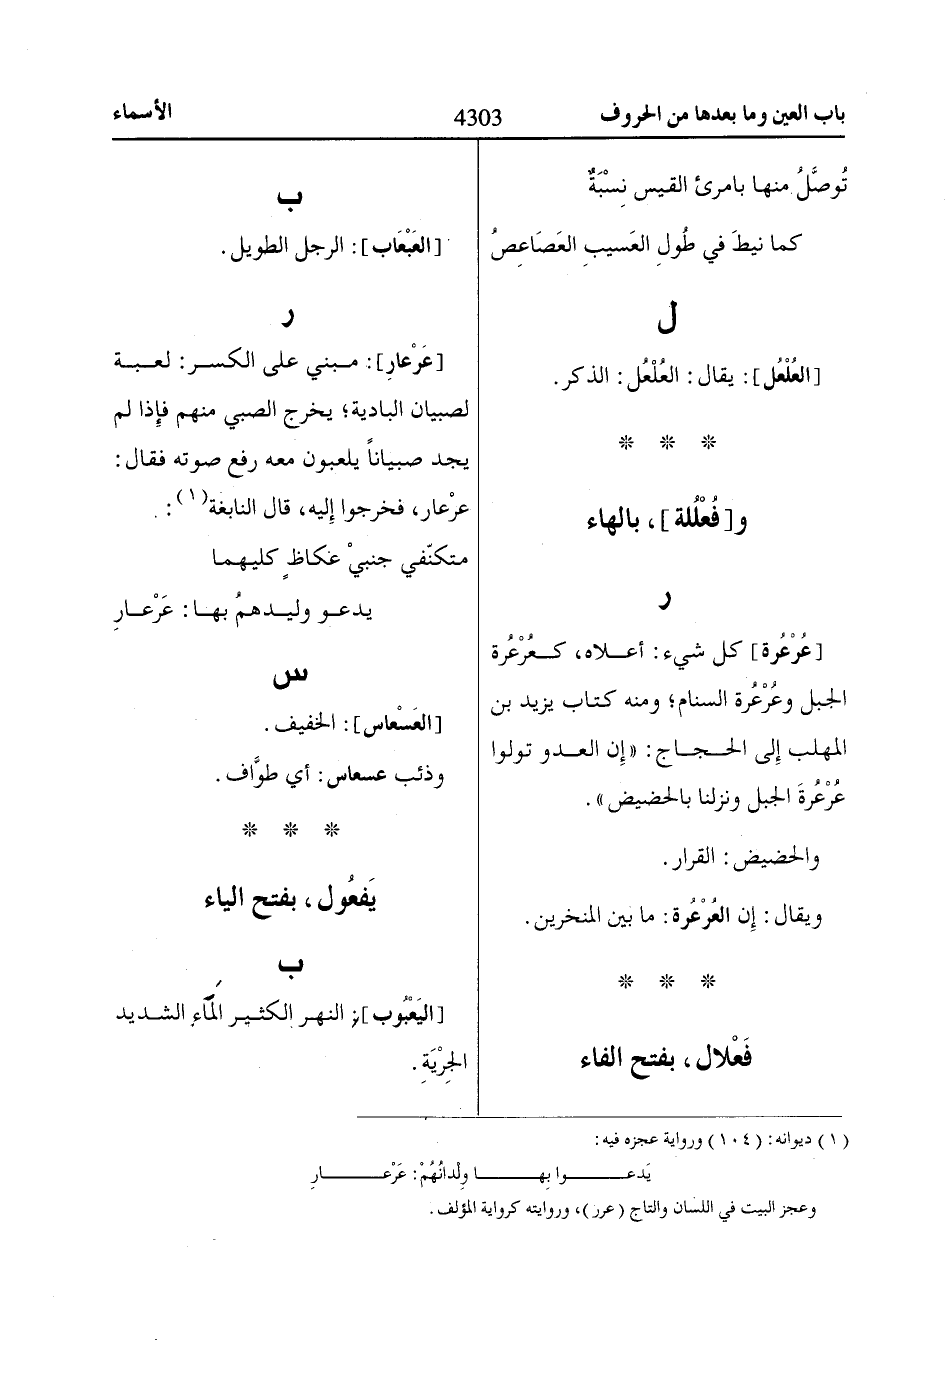 باب العين وما بعدها من الحروف 4303 الأسماء
تُوصَّلُ منها بامرئ القيس نِسْبَةٌ
كما نيطَ في طُولِ العَسيبِ العَصَاعِصُ
ل
[العُلْعُل]: يقال: العُلْعُل: الذكر.
* * *
و[فُعْلُلة]، بالهاء
ر
[عُرْعُرة] كل شيء: أعلاه، كعُرْعُرة
الجبل وعُرْعُرة السنام؛ ومنه كتاب يزيد بن
المهلب إلى الحجاج: «إن العدو تولوا
عُرْعُرةَ الجبل ونزلنا بالحضيض».
والحضيض: القرار.
ويقال: إن العُرْعُرة: ما بين المنخرين.
* * *
فَعْلال، بفتح الفاء
ب
[العَبْعَاب]: الرجل الطويل.
ر
[عَرْعارِ]: مبني على الكسر: لعبة
لصبيان البادية؛ يخرج الصبي منهم فإذا لم
يجد صبياناً يلعبون معه رفع صوته فقال:
عرْعار، فخرجوا إليه، قال النابغة(١):
متكنّفي جنبيْ عكاظٍ كليهما
يدعو وليدهمُ بها: عَرْعارِ
س
[العَسْعاس]: الخفيف.
وذئب عسعاس: أي طوَّاف.
* * *
يَفعُول، بفتح الياء
ب
[اليَعْبُوب]: النهر الكثير الماء الشديد
الجِرْيَةِ.
(١) ديوانه: (١٠٤) ورواية عجزه فيه:
يَدعوا بها وِلْدانُهُمْ: عَرْعارِ
وعجز البيت في اللسان والتاج (عرر)، وروايته كرواية المؤلف.